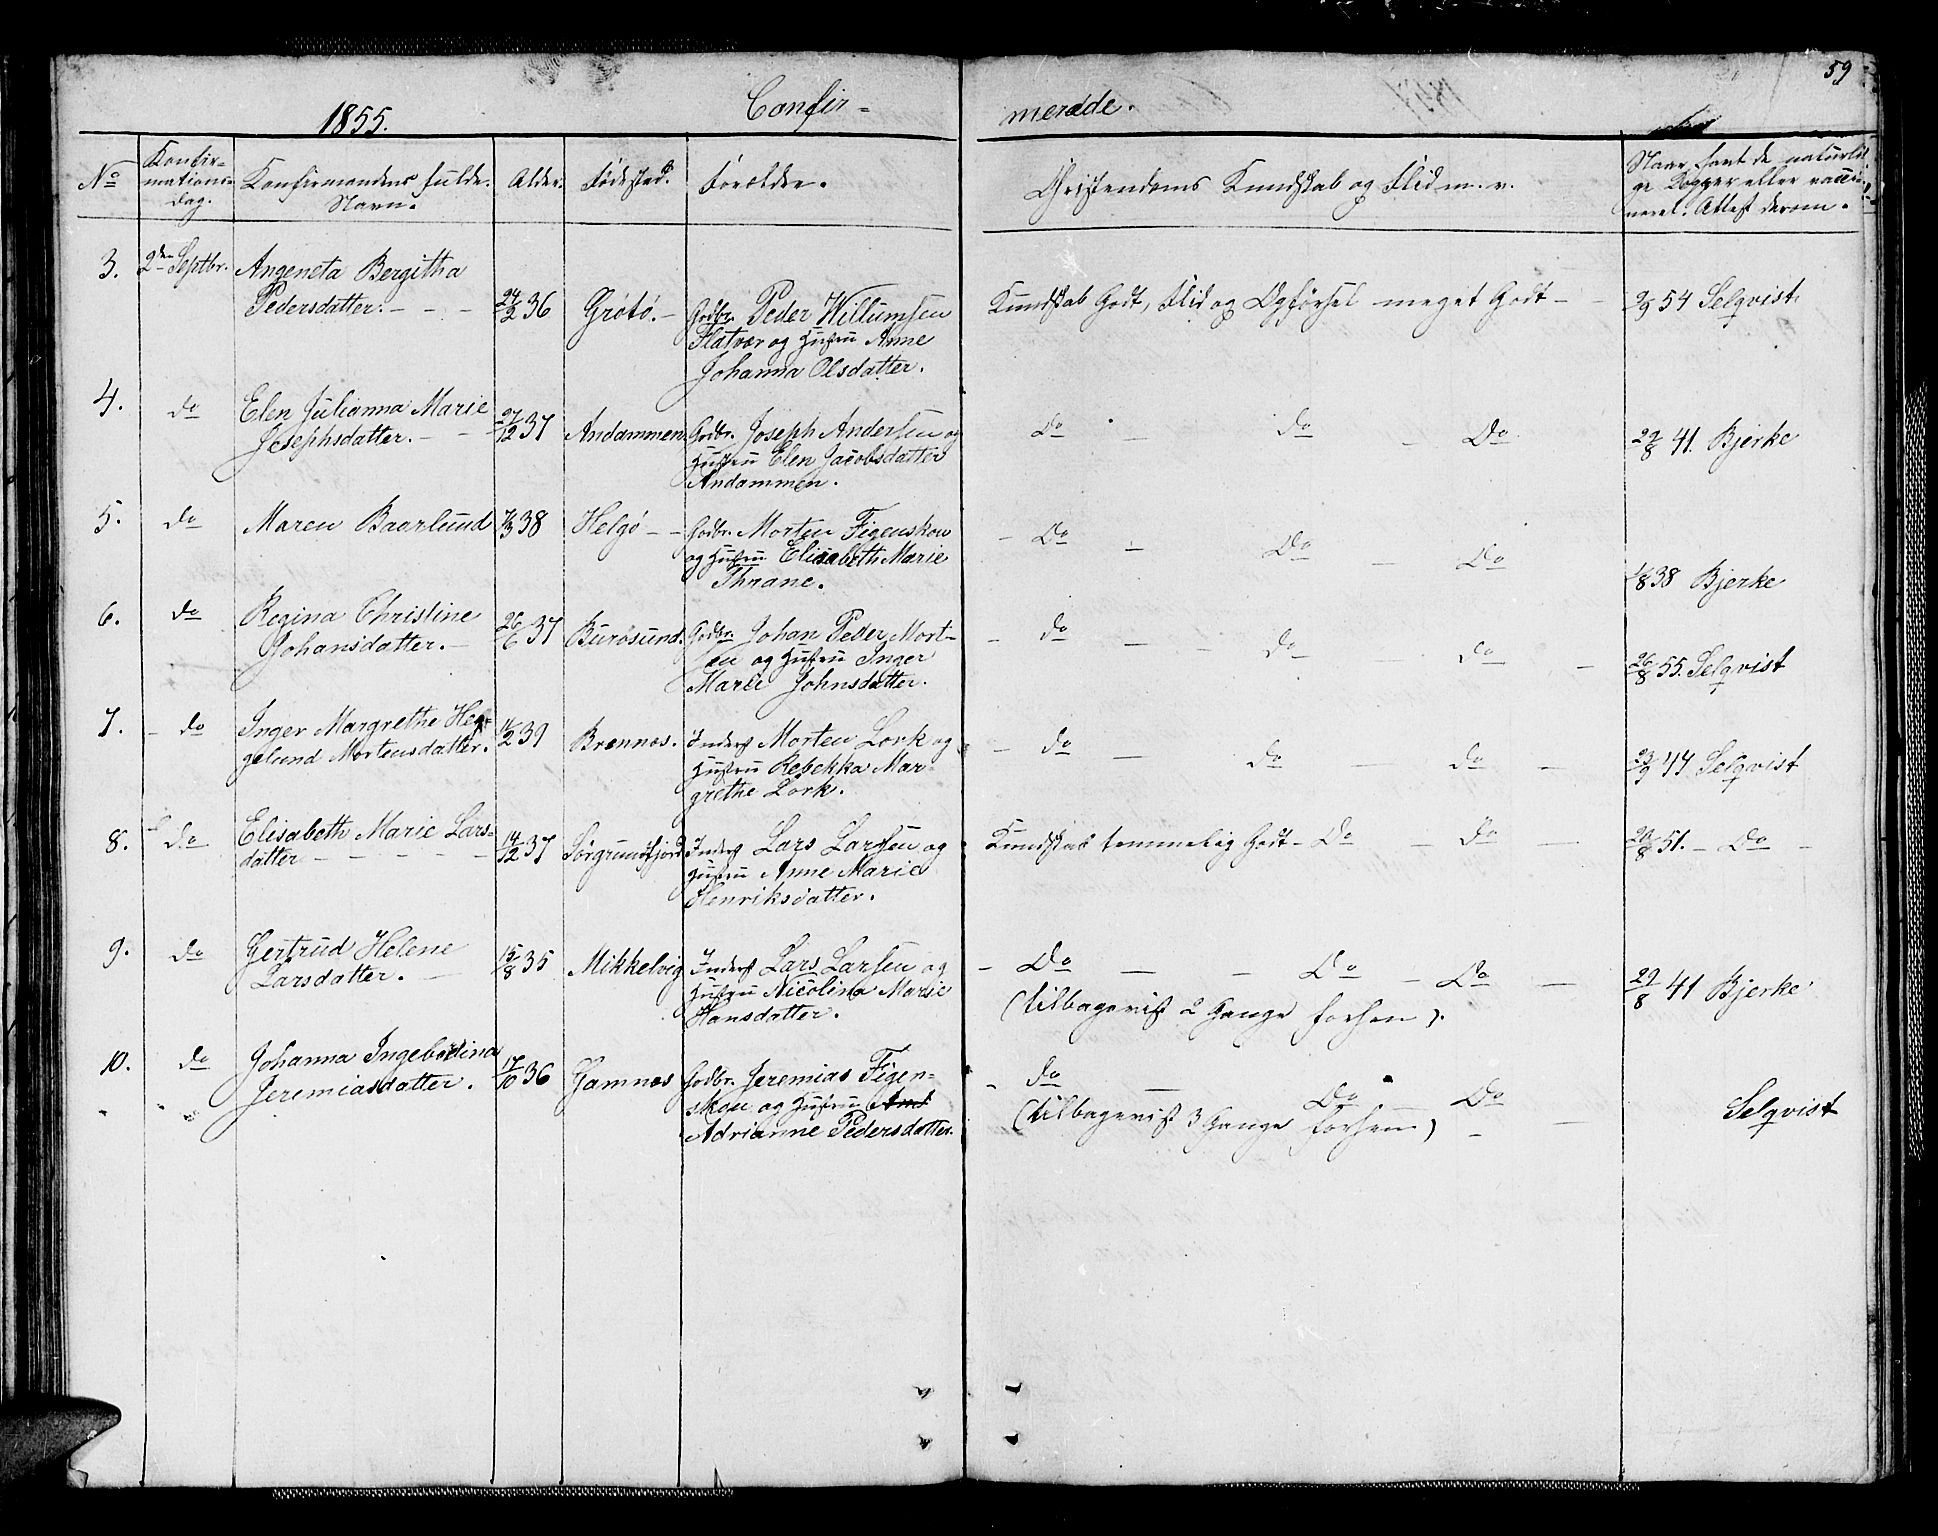 59
1855.
Confir=
merede.
No
Konfir=
mations=
dag.
Konfirmandens fulde
Navn.
Alder.
Fødested.
Forældre.
Christendoms Kundskab og Flid m. v.
Naar havt de naturli
ge Kopper eller vacci=
neret. Attest derom.
3. 2den Septbr. Angeneta Bergitha
Pedersdatter. - - - 24/2 36 Grøtø. - Godbr. Peder Willumsen
Flatvær og Hustru Anne
Johanna Olsdatter.
Kundskab Godt, Flid og Opførsel meget Godt - 2/9 54 Selqvist.
4. do Elen Julianna Marie
Josephsdatter. - - 27/12 37 Andammen. Godbr. Joseph Andersen og
Hustru Elen Jacobsdatter
Andammen.
Do - do - Do 29/8 41. Bjerke
5. do Maren Baarlund 7/3 38 Helgø - - Godbr. Morten Figenskou
og Hustru Elisabeth Marie
Thrane.
- Do - Do - Do 38 Bjerke
6. do Regina Christine
Johansdatter. - 26/6 37 Burøsund. Godbr. Johan Peder Mort-
sen og Hustru Inger
Marie Johnsdatter.
- do - - do - do - 26/8 55. Selqvist
7. - do Inger Margrethe Heg=
gelund Mortensdatter. 16/2 39 Brennes. Inderst Morten Lork og
Hustru Rebekka Mar=
grethe Lork.
- do - do - do - 23/9 44 Selqvist
8. do Elisabeth Marie Lars=
datter - - - - - 14/12 37 Sørgrundfjord Inderst Lars Larsen og
Hustru Anne Marie
Henriksdatter.
Kundskab temmelig Godt - Do - do - 20/8 51. - Do -
9. do Gertrud Helene
Larsdatter. - 15/8 35 Mikkelvig Inderst Lars Larsen og
Hustru Nicolina Marie
Hansdatter.
- Do - - Do - Do - 29/8 41 Bjerke
(tilbagevist 2 Gange forhen).
10. do Johanna Ingebordina
Jeremiasdatter. 17/10 36 Gamnes Godbr. Jeremias Figen=
skou og Hustru
Adrianne Pedersdatter.
- do - Do - Do -
(tilbagevist 3 Gange forhen) - Selqvist